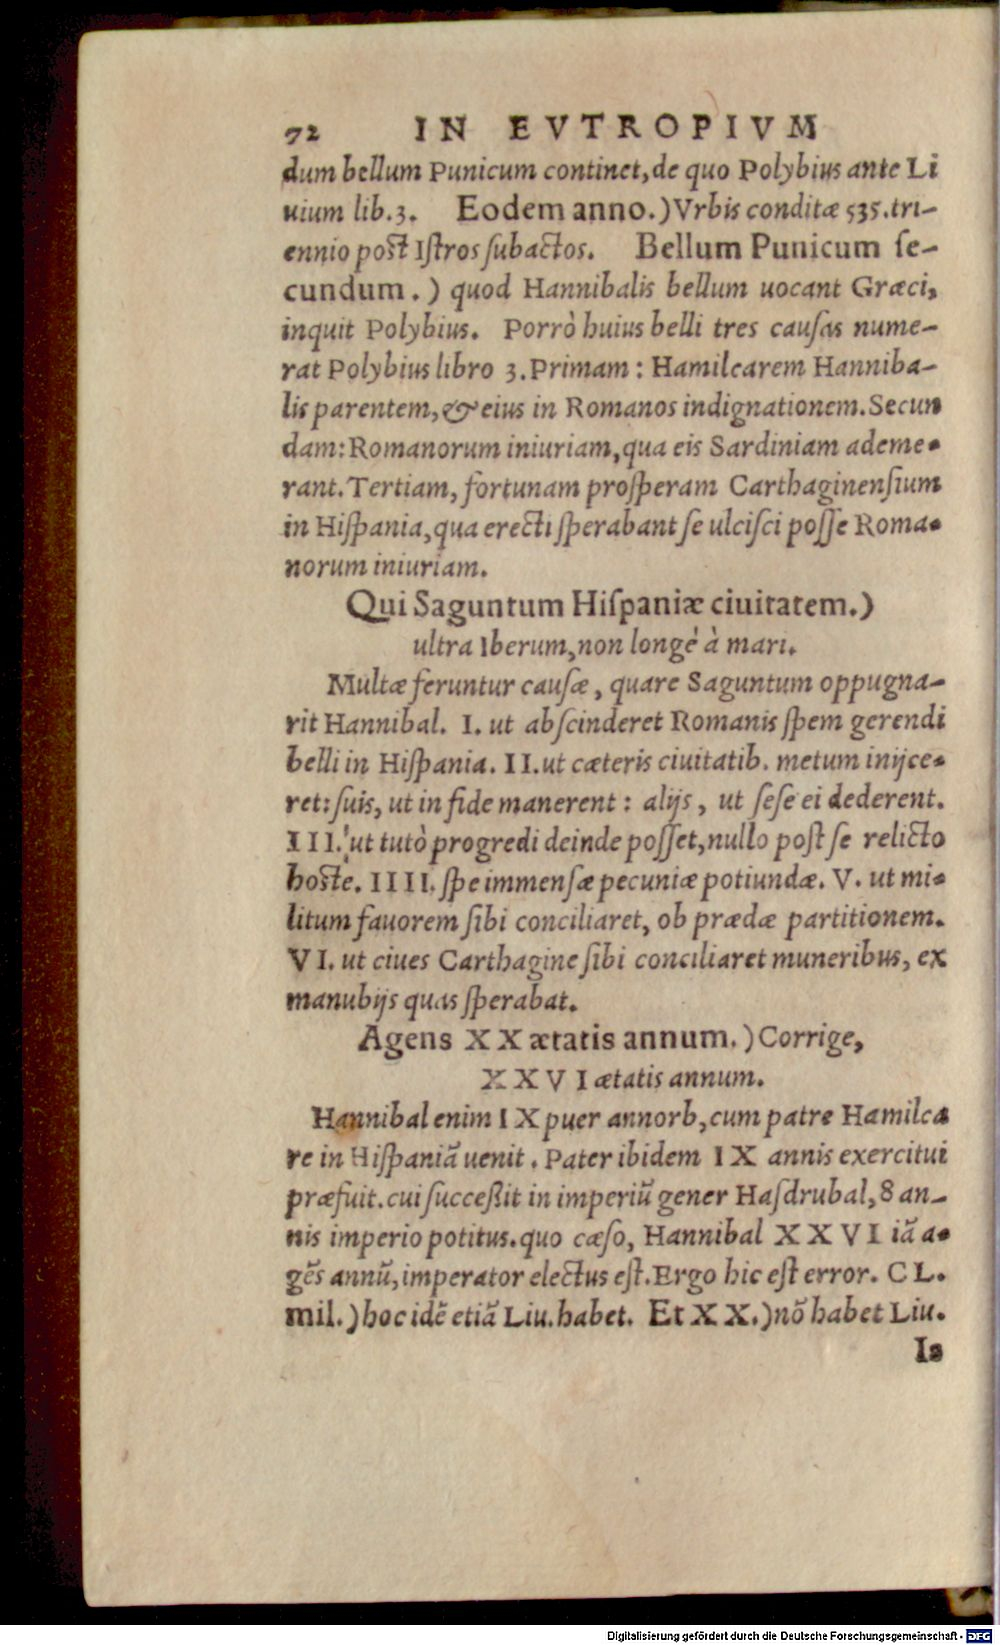 72 IN EVTROPIVM
dum bellum Punicum continet, de quo Polybius ante Li
uium lib.3. Eodem anno.) Vrbis conditæ 535. tri-
ennio post Iſtros ſubactos. Bellum Punicum ſe-
cundum.) quod Hannibalis bellum uocant Græci,
inquit Polybius. Porrò huius belli tres cauſas nume-
rat Polybius libro 3. Primam: Hamilcarem Hanniba-
lis parentem, & eius in Romanos indignationem. Secun
dam: Romanorum iniuriam, qua eis Sardiniam ademe-
rant. Tertiam, fortunam proſperam Carthaginenſium
in Hiſpania, qua erecti ſperabant ſe ulciſci poſſe Roma-
norum iniuriam.
Qui Saguntum Hiſpaniæ ciuitatem.)
ultra Iberum, non longè à mari.
Multæ feruntur cauſæ, quare Saguntum oppugna-
rit Hannibal. I. ut abſcinderet Romanis ſpem gerendi
belli in Hiſpania. II. ut cæteris ciuitatib. metum inijce-
ret: ſuis, ut in fide manerent: alijs, ut ſeſe ei dederent.
III. ut tutò progredi deinde poſſet, nullo poſt ſe relicto
hoſte. IIII. ſpe immenſæ pecuniæ potiundæ. V. ut mi-
litum fauorem ſibi conciliaret, ob prædæ partitionem.
VI. ut ciues Carthagine ſibi conciliaret muneribus, ex
manubijs quas ſperabat.
Agens XX ætatis annum.) Corrige,
XXVI ætatis annum.
Hannibal enim IX puer annorb, cum patre Hamilca
re in Hiſpaniã uenit. Pater ibidem IX annis exercitui
præfuit. cui ſucceßit in imperiũ gener Haſdrubal, 8 an-
nis imperio potitus. quo cæſo, Hannibal XXVI iã a-
gẽs annũ, imperator electus eſt. Ergo hic eſt error. CL.
mil.) hoc idẽ etiã Liu. habet. Et XX.) nõ habet Liu.
Is
Digitalisierung gefördert durch die Deutsche Forschungsgemeinschaft - DFG